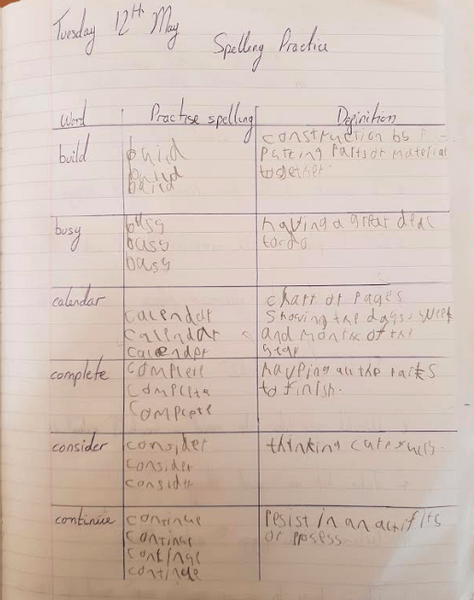 Tuesday 12th May
Spelling Practice
Word Practise spelling Definition
build
baild
baild
baild
construction by P
Patting Parts or material
together.
busy
bussy
bussy
bussy
having a great deal
to do
calendar
calender
calendar
calender
chart or Pages
showing the days, week
and months of the
year
complete
complete
complete
complete
having all the
to finish.
consider
consider
consider
consider
thinking
continue
continue
continue
continue
continue
Pesist in an
or